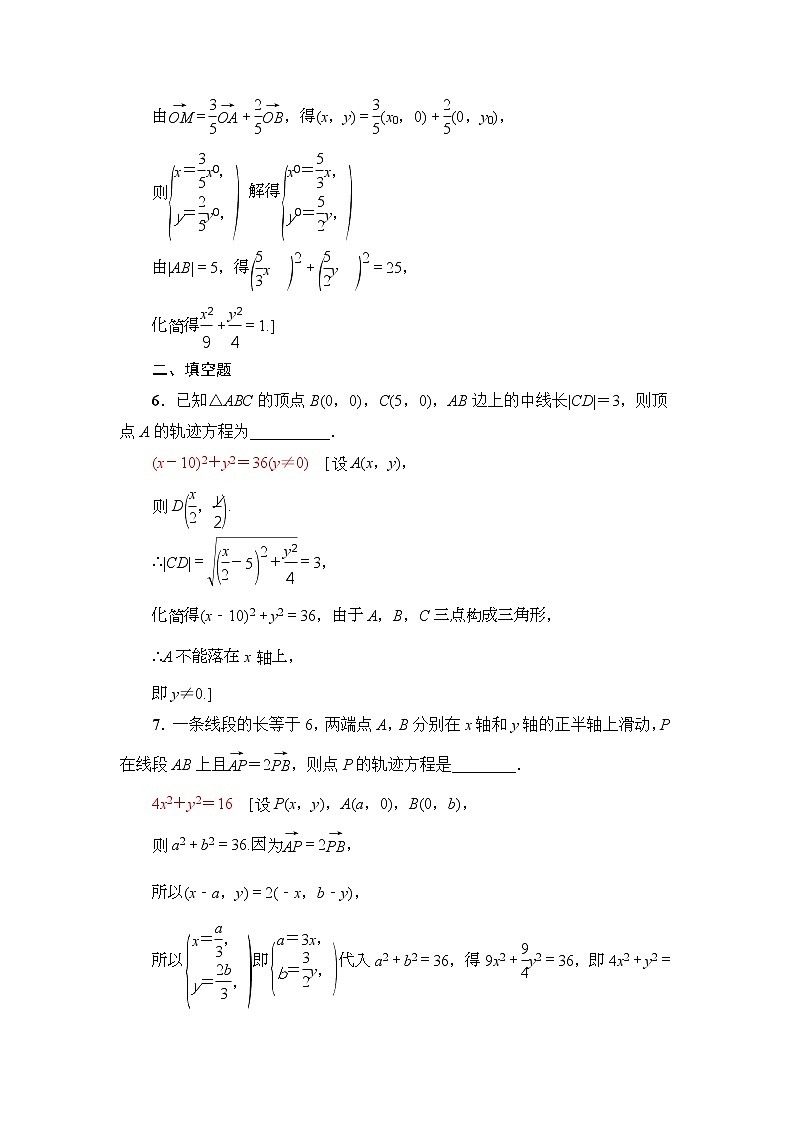 由OM→=3/5OA→+2/5OB→，得(x，y)=3/5(x₀，0)+2/5(0，y₀)，
则{x=3/5x⁰，y=2/5y⁰，) 解得{x⁰=5/3x，y⁰=5/2y，)
由|AB|=5，得(5/3x )²+(5/2y )²=25，
化简得x²/9+y²/4=1.]
二、填空题
6．已知△ABC的顶点B(0，0)，C(5，0)，AB边上的中线长|CD|=3，则顶
点A的轨迹方程为__________．
(x－10)²＋y²＝36(y≠0) [设A(x，y)，
则D(x/2，y/2).
∴|CD|=√((x/2－5)²+y²/4)=3，
化简得(x-10)²+y²=36，由于A，B，C三点构成三角形，
∴A不能落在x轴上，
即y≠0.]
7．一条线段的长等于6，两端点A，B分别在x轴和y轴的正半轴上滑动，P
在线段AB上且AP→＝2PB→，则点P的轨迹方程是________．
4x²＋y²＝16 [设P(x，y)，A(a，0)，B(0，b)，
则a²+b²=36.因为AP→=2PB→，
所以(x-a，y)=2(-x，b-y)，
所以{x=a/3，y=2b/3，)即{a=3x，b=3/2y，)代入a²+b²=36，得9x²+9/4y²=36，即4x²+y²=